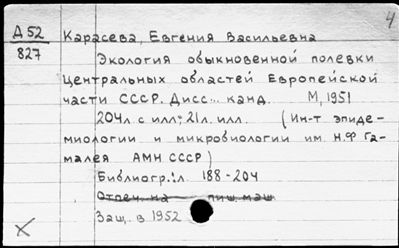 4
Д 52
827
Карасева, Евгения Васильевна
Экология обыкновенной полевки
Центральных областей Европейской
части СССР. Дисс... канд. М, 1951
204л. с илл; 21л. илл. (Ин-т эпиде-
миологии и микробиологии им. Н.Ф Га-
малея АМН СССР)
Библиогр.: л. 188-204
Отпеч. на пиш. маш
Защ. в 1952